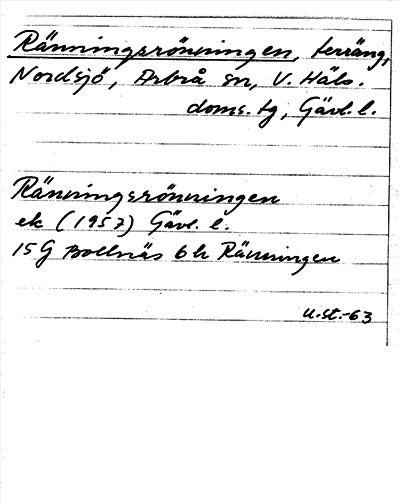 Ränningsrönningen, terräng,
Nordsjö, Arbrå sn, V. Häls.
doms. tg, Gävl. l.
Ränningsrönningen
ek (1957) Gävl. l.
15G Bollnäs 6h Ränningen
U.St.-63